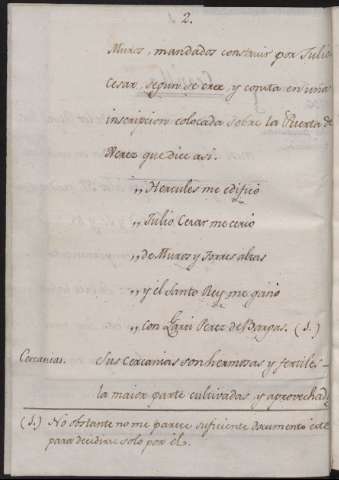 2.
Muros, mandados construir por Julio
Cesar, segun se cree, y consta en una
inscripcion colocada sobre la Puerta de
Xerez que dice asi.
„Hercules me edificó
„Julio Cesar me cercó
„de Muros y Torres altas
„y el Santo Rey me ganó
„con Garci Perez de Bargas. (1.)
Cercanias. Sus cercanias son hermosas y fertiles
la maior parte cultivadas y aprovechad
(1.) No obstante no me parece suficiente documento este
para decidirse solo por él.